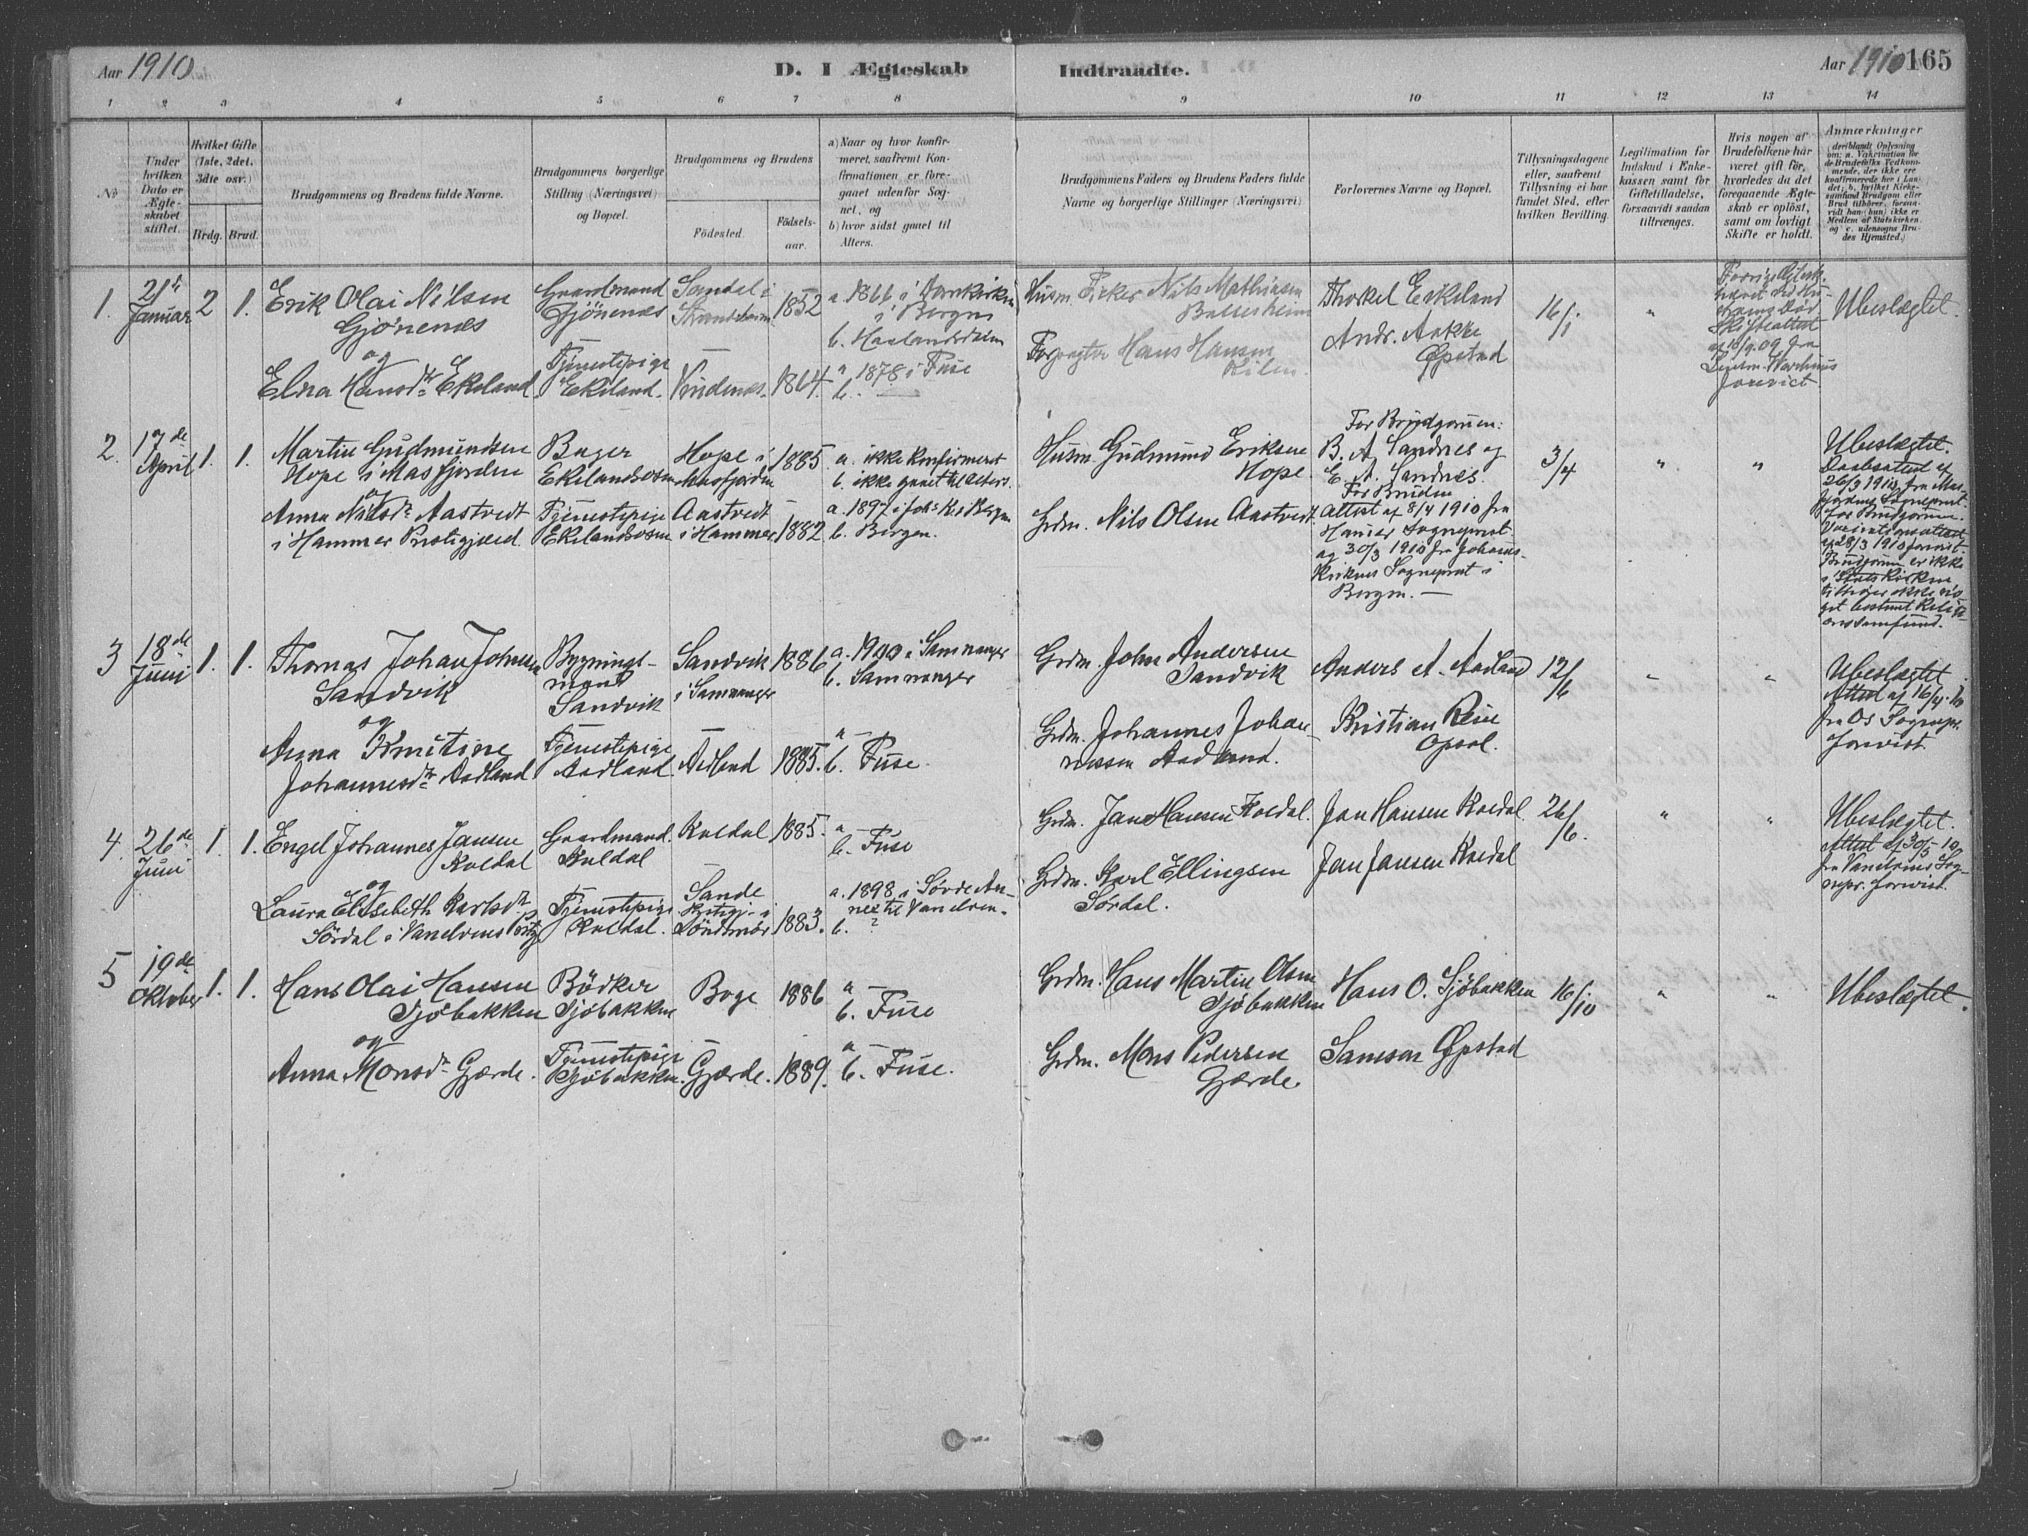 Aar 1910
D. I Ægteskab Indtraadte.
Aar 1910 165
1 2 3 4 5 6 7 8 9 10 11 12 13 14
№
Under hvilken Dato er Ægteskabet stiftet.
Hvilket Gifte (1ste, 2det, 3die osv.)
Brdg. Brud.
Brudgommens og Brudens fulde Navne.
Brudgommens borgerlige Stilling (Næringsvei) og Bopæl.
Brudgommens og Brudens
Fødested.
Fødselsaar.
a) Naar og hvor konfirmeret, saafremt Konfirmationen er foregaaet udenfor Sognet, og
b) hvor sidst gaaet til Alters.
Brudgommens Faders og Brudens Faders fulde Navne og borgerlige Stillinger (Næringsvei)
Forlovernes Navne og Bopæl.
Tillysningsdagene eller, saafremt Tillysning ei har fundet Sted, efter hvilken Bevilling.
Legitimation for Indskud i Enkekassen samt for Giftetilladelse, forsaavidt saadan tiltrænges.
Hvis nogen af Brudefolkene har været gift før, hvorledes da det foregaaende Ægteskab er opløst, samt om lovligt Skifte er holdt.
Anmærkninger
(deriblandt Oplysning om: a. Vakcination for de Brudefolks Vedkommende, der ikke ere konfirmerede her i Landet; b. hvilket Kirkesamfund Brudgom eller Brud tilhører, forsaavidt han (hun) ikke er Medlem af Statskirken, og c. udensogns Brudes Hjemsted.)
1. 21de Januar 2 1. Erik Olai Nilsen Gjönenæs
Gaardmand Gjönenæs
Sandal i Strandebarm 1852
a. 1866 i Domkirken i Bergen
b. Haalandsdalen
Husm. Fisker Nils Mathiasen
Thorkel Eikeland
Andr. Aakke Øpstad
16/1 " Ubeslægtet.
og
Elna Hansdtr Ekeland
Tjenestepige Ekeland Vindenes 1864.
a 1878 i Fuse
b. —
Hans Hansen
2. 17de April 1. 1. Martin Gudmundsen Hope i Masfjorden
Bager Ekelandsosen
Hope i Masfjorden 1885
a. ikke konfirmeret
b. ikke gaaet til Alters.
Husm. Gudmund Eriksen Hope.
For Brudgommen:
B. A. Sandnes og
E. A. Sandnes.
3/4 " "
Ubeslægtet.
Daabsattest af
26/3 1910 fra Masfjordens Sogneprest
for Brudgommen.
Vaccinationsattest
af 28/3 1910 forevist.
Brudgommen er ikke
i Statskirken
tilhører ikke noget bestemt Religionssamfund.
og
Anna Nilsdtr Aastvedt i Hammer Prestegjæld.
Tjenestepige Ekelandsosen
Aastvedt i Hammer 1882
a. 1897 i Joh. K. i Bergen
b. Bergen.
Grdm. Nils Olsen Aastvedt
For Bruden
Attest af 8/4 1910 fra
Hammer Sogneprest
og 30/3 1910 fra Johanneskirkens Sogneprest i
Bergen. —
3 18de Juni 1. 1. Thomas Johan Johnsen Sandvik
Bygningsmand Sandvik
Sandvik i Samnanger 1886
a. 1900 i Samnanger
b. Samnanger
Grdm. John Andersen Sandvik
Anders A. Aadland 12/6 " "
Ubeslægtet.
Attest af 16/4 10
fra Os Sognepr.
forevist.
og
Anna Kristine Johannesdtr Aadland
Tjenestepige Aadland. Aadland 1885.
a —
b. Fuse.
Grdm. Johannes Johannessen Aadland.
Kristian Rein Opsal.
4. 26de Juni 1. 1. Engel Johannes Jansen Koldal
Gaardmand. Koldal
Koldal 1885.
a —
b. Fuse
Grdm. Jan Hansen Koldal.
Jan Hansen Koldal 26/6. " "
Ubeslægtet.
Attest af 30/5 10
fra Vanelvens Sognepr. forevist.
og
Laura Elisebeth Karlsdtr Sördal i Vanelvens Prstgj.
Tjenestepige Koldal.
Sande Prstgj. i Söndmör 1883.
a. 1898 i Sövde Annex til Vanelven.
b. ?
Grdm. Karl Ellingsen Sördal.
Jan Jansen Koldal
5 19de Oktober 1. 1. Hans Olai Hansen Sjöbakken
Bödker Sjöbakken
Boge 1886
a —
b. Fuse
Grdm. Hans Martin Olsen Sjöbakken
Hans O. Sjöbakken 16/10 " "
Ubeslægtet.
og
Anna Monsdtr Gjærde.
Tjenestepige Sjöbakken. Gjærde. 1889.
a —
b. Fuse.
Grdm. Mons Pedersen Gjærde.
Samson Øpstad